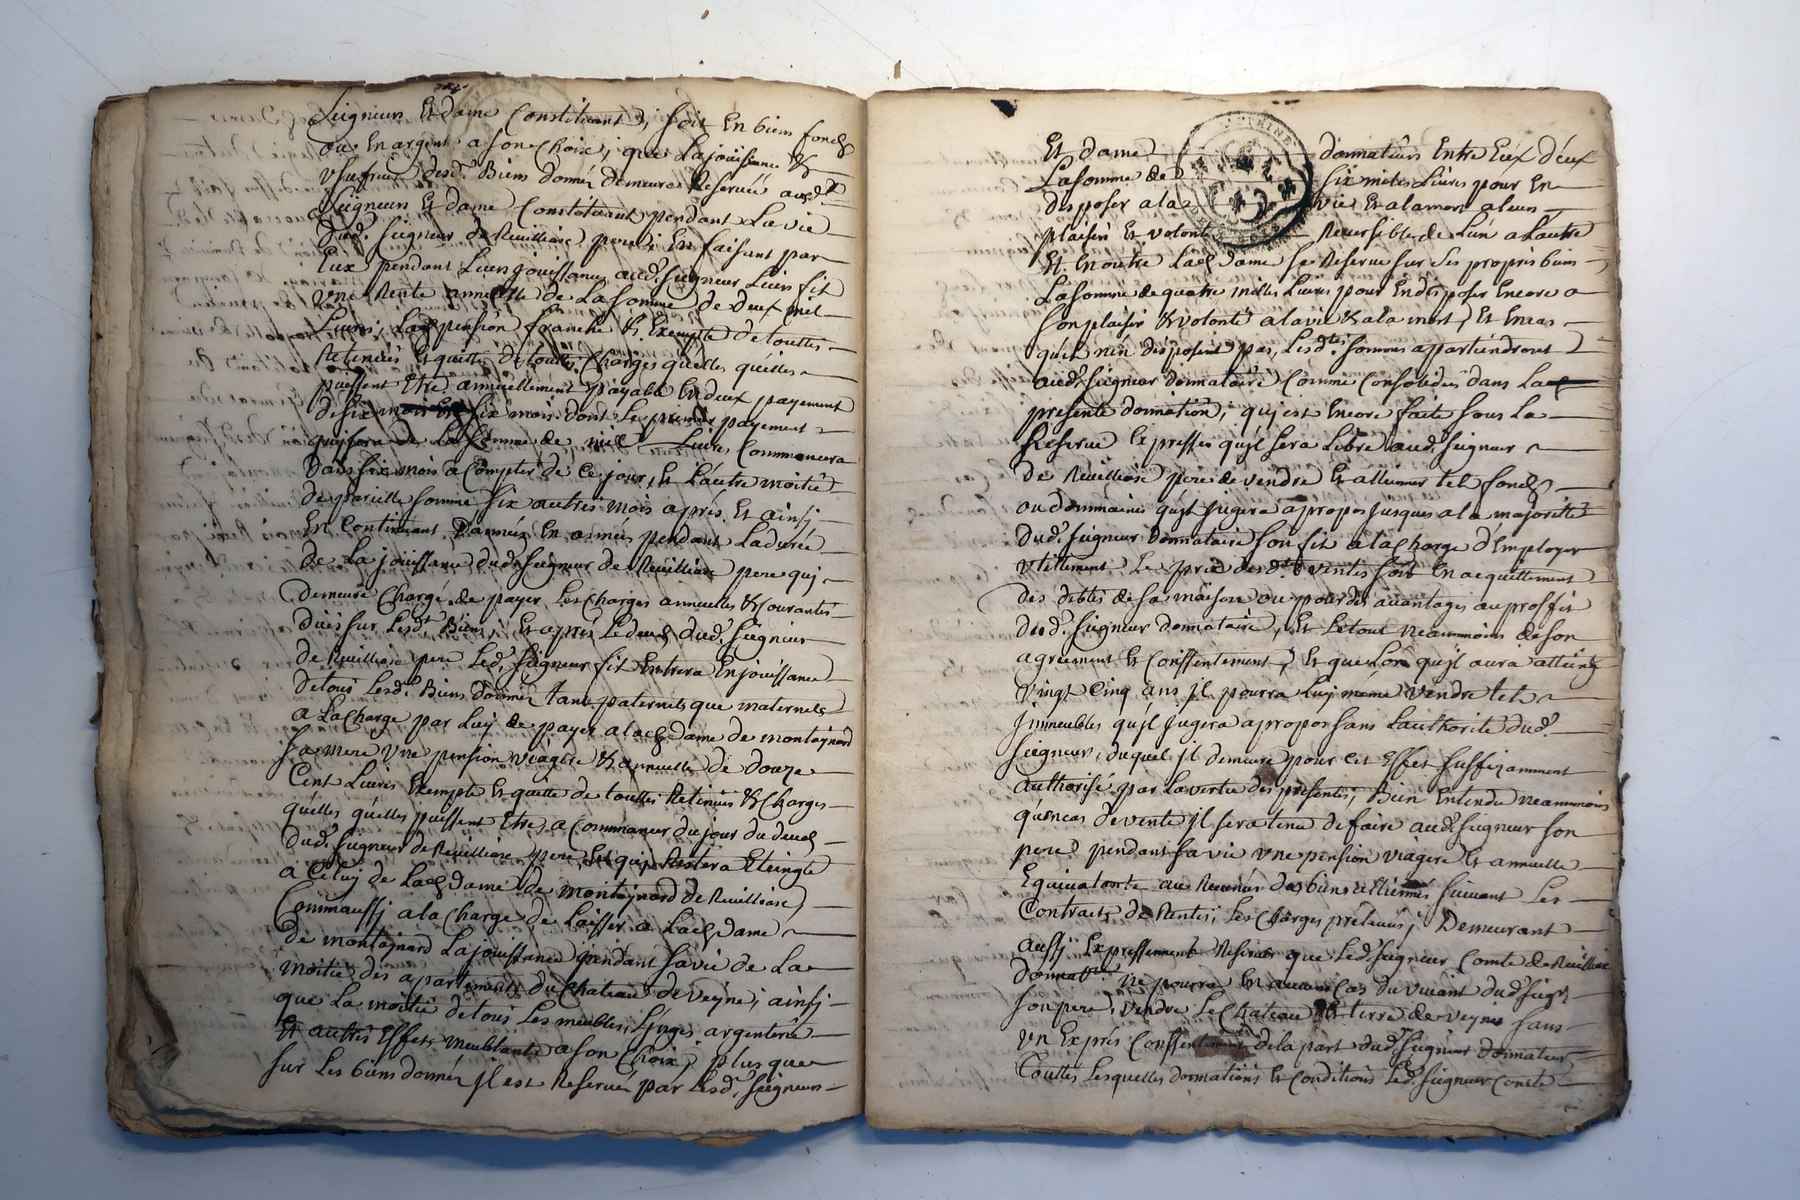 Seigneurs Et dame Constituant, soit En biens fonds
ou En argent a son Choix; que La jouissance &
Vsufruit desd. Biens donnéz demeure Reservée aud.
Seigneurs Et dame Constituant pendant La vie
dud. seigneur de Reuilliase pere; En faisant par
Eux pendant Leurs jouissances aud. seigneur Leur fit
vne Rente annuelle de La somme de deux mil
Livres, pension franche & Exempte de touttes
Retenües Et quitte de touttes Charges quelles quelles
puissent Etre annuellement payable En deux payement
de six mois En six mois dont Le premier payement
quj sera de La somme de mil Livres Commancera
dans six mois a Compter de Ce jour, Et L'autre moitié
de pareille somme six autres mois aprés, Et ainsj
En Continuant D'année En année pendant La durée
de La jouissance dud. seigneur de Reuilliase pere quj
demeure Chargé de payer Les Charges annuelles & Courantes
düés sur Lesd. Biens; Et aprés Le deces dud. seigneur
de Reuilliase pere Led. seigneur fit Entrera En jouissance
de tous Lesd. Biens donnéz tant paternels que maternels
a La Charge par Luy de payer a lad. dame de montejnard
sa mere vne pension viagere & annuelle de douze
Cent Livres Exempte Et quitte de touttes Retenües & Charges
quelles quelles puissent Etre, a Commancer du jour du deces
dud. seigneur de Reuilliase pere, Et quj Restera Eteingte
a Celuj de Lad. Dame de montejnard de Reuilliase,
Comm'aussj a la Charge de Laisser a Lad. Dame
de montejnard La jouissance pendant sa vie de La
moitié des apartements du Chateau de Veyne; ainsj
que La moitié de tous Les meubles, Linges, argenterie
Et autres Effets meublants a son Choix, plus que
sur Les biens donnéz jl est Reservé par Lesd. Seigneurs
Et dame donnateurs Entre Eux deux
La somme de six milles Livres pour En
disposer a la vie Et a la mort a leurs
plaisirs Et volonté Reversible de L'un a Lautre
Et En outre Lad. dame se Reserve sur ses propres biens
La somme de quatre milles Livres pour En disposer Encore a
son plaisir & volonté a la vie & a la mort, Et En cas
qu'il n'en disposent pas, Lesd. sommes apartiendront
aud. seigneur donnataire Comme Consolidées dans La
presente donnation, quj est Encore faite sous La
Reserve Expresse qu'jl sera Libre aud. seigneur
de Reuilliase pere de vendre Et alliener tel fonds
ou dommaines qu'jl jugera a propos jusques a la majorité
dud. seigneur donnataire son fit a la Charge d'Employer
vtillement Le prix desd. ventes soit En acquittement
des debtes de sa maison ou pour des auantages au proffit
dud. seigneur donnataire, Et Le tout neammoins de son
agreement Et Consentement, Et que Lors qu'jl aura atteint
vingt Cinq ans jl pourra Luy méme vendre tels
jmmeubles qu'jl jugera a propos sans L'authorité dud.
seigneur, duquel jl demeure pour cet Effet suffizamment
authorisé par La vertu des presentes; Bien Entendu neammoins
qu'en cas de vente jl sera tenu de faire aud. seigneur son
pere pendant sa vie vne pension viagere Et annuelle
Equivalente au Revenus des biens alliennés suivant Les
Contrats de Rentes, Les Charges prélevées; Demeurant
aussj Expressement Reservé que Led. seigneur Comte de Reuilliase
donnat.re ne pourra En aucun Cas du vivant dud. seig.r
son pere, vendre Le Chateau & terre de Veynes sans
vn Exprés Consentement de la part dud. seigneur donnateur,
Touttes Lesquelles donnations Et Conditions Led. seigneur Comte